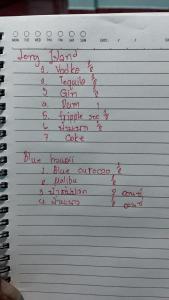 MON TUE WED THU FRI SAT SUN
Long Island
1. Vodka ½
2. Tequila ½
3 Gin ½
4. Rum 1
5. Tripple sec ½
6. น้ำมะนาว ½
7. Coke
Blue hawaii
1. Blue curacao
2 Malibu
3 น้ำสับปะรด 2 ออนซ์
4. น้ำมะนาว ออนซ์